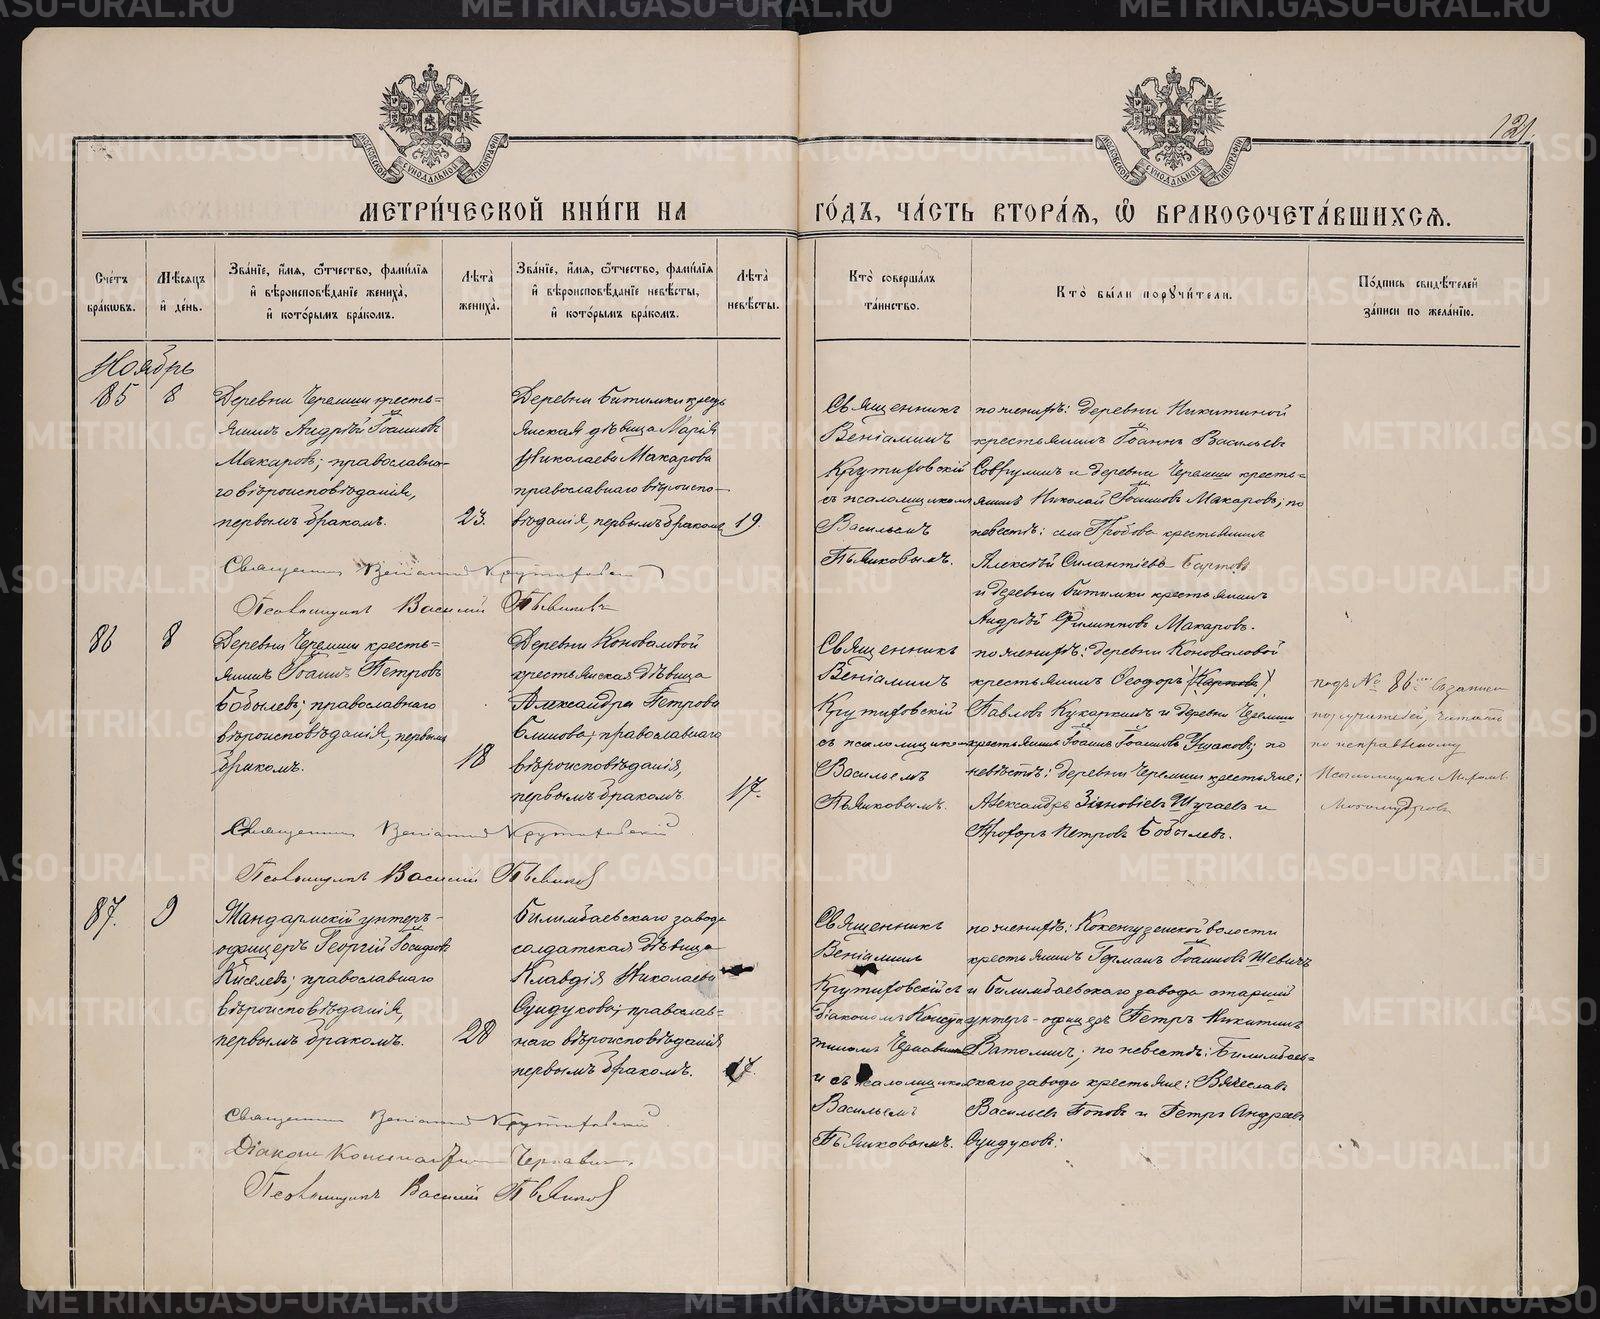 121.
МЕТРИ́ЧЕСКОЙ КНИ́ГИ НА
ГО́ДЪ, ЧА́СТЬ ВТОРА́Я, Ѿ БРАКОСОЧЕТА́ВШИХСЯ.
Сче́тъ бра́кѡвъ.
Мѣ́сяцъ и҆ де́нь.
Зва́нїе, и҆́мя, ѻ҆́тчество, фами́лїя и҆ вѣроисповѣ́данїе жениха̀, и҆ кото́рымъ бра́комъ.
Лѣ́та жениха̀.
Зва́нїе, и҆́мя, ѻ҆́тчество, фами́лїя и҆ вѣроисповѣ́данїе невѣ́сты, и҆ кото́рымъ бра́комъ.
Лѣ́та невѣ́сты.
Кто̀ соверша́лъ та́инство.
Кто̀ бы́ли поручи́тели.
По́дпись свидѣ́телей за́писи по жела́нїю.
Ноябрь
85
8
Деревни Черемши кресть-
янинъ Андрѣй Іоанновъ
Макаровъ; православна-
го вѣроисповѣданія,
первымъ бракомъ.
23.
Деревни Битимки крестъ
янская дѣвица Марія
Николаева Макарова
православнаго вѣроиспо-
вѣданія, первымъ бракомъ
19.
Священникъ
Веніаминъ
Крутиховскій
съ псаломщикомъ
Васильемъ
Пьянковымъ.
по женихѣ: деревни Никитиной
крестьянинъ Іоаннъ Васильевъ
и деревни Черемши кресть-
янинъ Николай Іоанновъ Макаровъ; по
невѣстѣ: села Гробова крестьянинъ
Алексѣй Силантіевъ Бартовъ
и деревни Битимки крестьянинъ
Андрѣй Филипповъ Макаровъ.
Священникъ Веніаминъ Крутиховскій
Псаломщикъ Василій Пьянковъ
86
8
Деревни Черемши кресть-
янинъ Іоаннъ Петровъ
Бобылевъ; православнаго
вѣроисповѣданія, первымъ
бракомъ.
18
Деревни Коноваловой
крестьянская дѣвица
Александра Петрова
Блинова; православнаго
вѣроисповѣданія,
первымъ бракомъ
17.
Священникъ
Веніаминъ
Крутиховскій
съ псаломщикомъ
Васильемъ
Пьянковымъ.
по женихѣ: деревни Коноваловой
крестьянинъ Ѳеодоръ (Карповъ)
Павловъ Кукаркинъ и деревни Черемши
крестьянинъ Іоаннъ Іоанновъ Ушаковъ; по
невѣстѣ: деревни Черемши крестьяне:
Александръ Зиновіевъ Шугаевъ и
Прохоръ Петровъ Бобылевъ.
подъ № 86 въ записи
поручителей, читать
по исправленному
Псаломщикъ
Священникъ Веніаминъ Крутиховскій
Псаломщикъ Василій Пьянковъ
87.
9
Жандармскій унтеръ-
офицеръ Георгій Іосифовъ
Киселевъ; православнаго
вѣроисповѣданія,
первымъ бракомъ.
28
Билимбаевскаго завода
солдатская дѣвица
Клавдія Николаева
Сундукова; православ-
наго вѣроисповѣданія
первымъ бракомъ.
17.
Священникъ
Веніаминъ
Крутиховскій съ
діакономъ Конста
тиномъ
и съ псаломщикомъ
Васильемъ
Пьянковымъ.
по женихѣ: волости
крестьянинъ Германъ Іоанновъ Шевичъ
и Билимбаевскаго завода старшій
унтеръ-офицеръ Петръ Никитинъ
Ватолинъ; по невѣстѣ: Билимбаев-
скаго завода крестьяне: Вячеславъ
Васильевъ Поповъ и Петръ Андреевъ
Сундуковъ.
Священникъ Веніаминъ Крутиховскій
Діаконъ Константинъ
Псаломщикъ Василій Пьянковъ